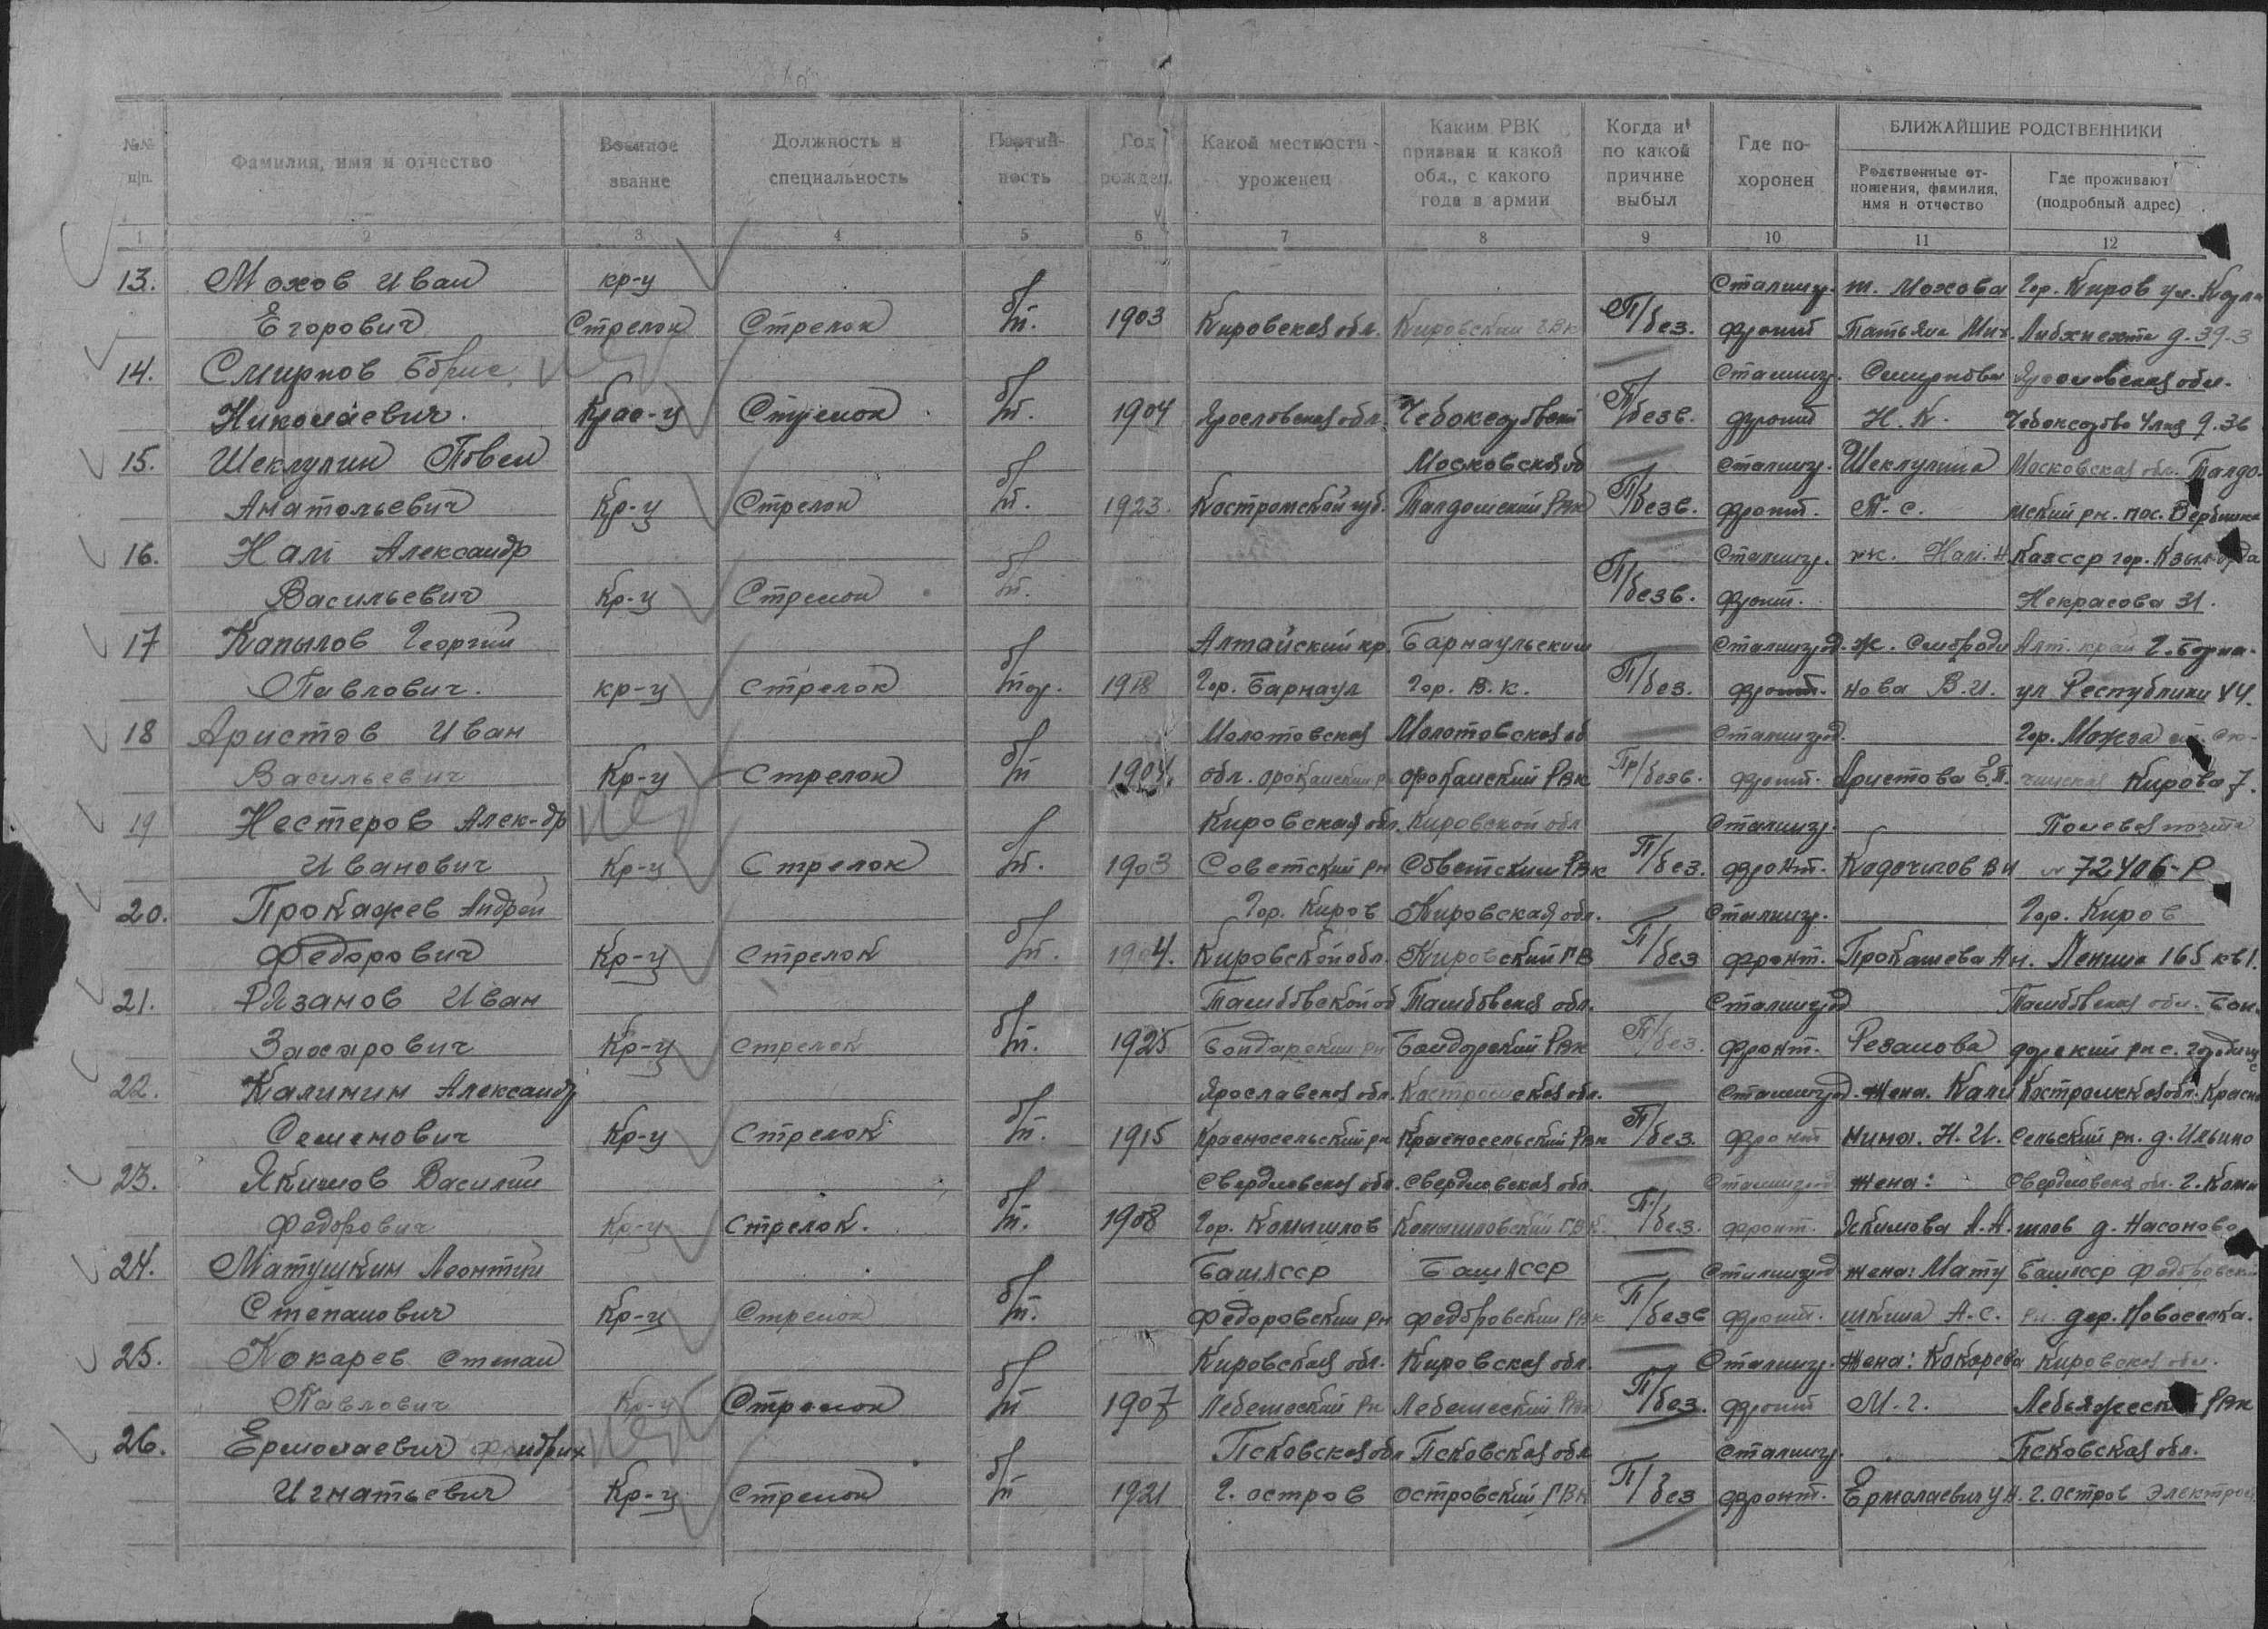 №№ п/п. Фамилия, имя и отчество Военное звание Должность и специальность Партийность Год рожден. Какой местности уроженец Каким РВК призван и какой обл., с какого года в армии Когда и по какой причине выбыл Где похоронен БЛИЖАЙШИЕ РОДСТВЕННИКИ
Родственные отношения, фамилия, имя и отчество Где проживают (подробный адрес)
1 2 3 4 5 6 7 8 9 10 11 12
13. Мохов Иван кр-ц Сталингр. т. Мохова Гор. Киров ул.
Егорович Стрелок Стрелок б/п. 1903 Кировская обл. Кировский ГВК П/без. фронт Татьяна Мих. Либкнехта д. 39-3
14. Смирнов Борис Сталингр. Смирнова Ярославская обл.
Николаевич. Крас-ц Стрелок б/п. 1904 Ярославская обл. П/безв. фронт Н. К.
15. Шеклупин Павел Московская об Сталингр. Шеклупина Московская обл. Талдо-
Анатольевич Кр-ц Стрелок б/п. 1923. Костромской губ. Талдомский РВК П/безв. фронт. мский рн. пос. Вербилки
16. Нам Александр Сталингр. Казсср гор. Кзыл-орда
Васильевич Кр-ц Стрелок б/п. П/безв. фронт. Некрасова 31.
17 Капылов Георгий Алтайский кр. Барнаульский Сталинград. ж. Смороди Алт. край г. Барна-
Павлович. кр-ц стрелок 1918 Гор. Барнаул Гор. В. К. П/без. фронт. нова В. И. ул Республики 44.
18 Аристов Иван Молотовская Молотовская об Сталинград. Гор. Можга
Васильевич Кр-ц Стрелок б/п 1904. обл. П/безв. фронт. Аристова Е.П. Кирова 7.
19 Нестеров Алек-др Кировская обл. Кировской обл Сталингр. Полевая почта
Иванович Кр-ц Стрелок б/п. 1903 Советский рн Советский РВК П/без. фронт. № 72406-Р
20. Прокашев Андрей Гор. Киров Кировская обл. Сталингр. Гор. Киров
Федорович Кр-ц Стрелок б/п. 1904. Кировской обл. Кировский ГВ П/без фронт. Прокашева Ан. Ленина 165 кв 1.
21. Рязанов Иван Тамбовской об Тамбовская обл. Сталинград Тамбовская обл. Бон-
Захарович Кр-ц стрелок б/п. 1925 Бондарский рн Бондарский РВК П/без. фронт. Резанова дарский рн с.
22. Калинин Александр Ярославская обл. Костромская обл. Сталинград. Жена. Кали Костромская обл. Красно
Семенович Кр-ц Стрелок б/п. 1915 Красносельский рн Красносельский РВК П/без. фронт нина. Н. И. Сельский рн. д. Ильино
23. Якимов Василий Свердловская обл. Свердловская обл. Сталинград Жена: Свердловска обл. г. Камы
Федорович Кр-ц Стрелок. б/п. 1908 Гор. Комышлов Комышловский ГВК. П/без. фронт. Якимова А. А. шлов д. Насоново
24. Матушкин Леонтий БашАССР БашАССР Сталинград жена: Мату Башасср Федоровский
Степанович Кр-ц Стрелок б/п. Федоровский рн Федоровский РВК П/безв фронт. шкина А. С. рн дер. Новоселка.
25. Кокарев Степан Кировская обл. Кировская обл. Сталингр. Жена: Кокарева Кировская обл.
Павлович Кр-ц Стрелок б/п 1907 П/без. фронт М. Г. РВК
26. Ермолаевич Фридрих Псковская обл Псковская обл Сталингр. Псковская обл.
Игнатьевич Кр-ц Стрелок б/п 1921 г. остров островский ГВК П/без фронт. Ермолаевич г. остров